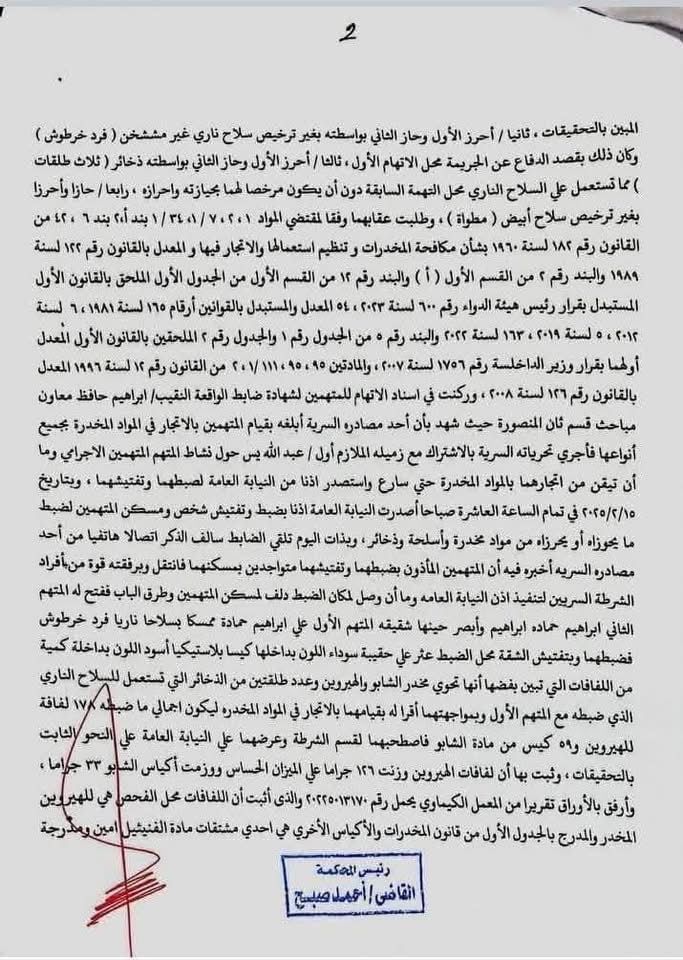 2
المبين بالتحقيقات ، ثانيا / أحرز الأول وحاز الثاني بواسطته بغير ترخيص سلاح ناري غير مششخن ( فرد خرطوش )
وكان ذلك بقصد الدفاع عن الجريمة محل الاتهام الأول ، ثالثا / أحرز الأول وحاز الثاني بواسطته ذخائر ( ثلاث طلقات
) مما تستعمل علي السلاح الناري محل التهمة السابقة دون أن يكون مرخصا لهما بحيازته واحرازه ، رابعا / حازا وأحرزا
بغير ترخيص سلاح أبيض ( مطواة ) ، وطلبت عقابهما وفقا لمقتضي المواد ٢،١ ، ١/٧ ، ١/٣٤ بند أ،٢ بند ٦ ، ٤٢ من
القانون رقم ١٨٢ لسنة ١٩٦٠ بشأن مكافحة المخدرات و تنظيم استعمالها والاتجار فيها و المعدل بالقانون رقم ١٢٢ لسنة
١٩٨٩ والبند رقم ٢ من القسم الأول ( أ ) والبند رقم ١٢ من القسم الأول من الجدول الأول الملحق بالقانون الأول
المستبدل بقرار رئيس هيئة الدواء رقم ٦٠٠ لسنة ٢٠٢٣ ، ٥٤ المعدل والمستبدل بالقوانين أرقام ١٦٥ لسنة ١٩٨١ ، ٦ لسنة
٢٠١٢ ، ٥ لسنة ٢٠١٩ ، ١٦٣ لسنة ٢٠٢٢ والبند رقم ٥ من الجدول رقم ١ والجدول رقم ٢ الملحقين بالقانون الأول المعدل
أولهما بقرار وزير الداخلسة رقم ١٧٥٦ لسنة ٢٠٠٧ ، والمادتين ٩٥ ، ٩٥ ، ١١١ /٢،١ من القانون رقم ١٢ لسنة ١٩٩٦ المعدل
بالقانون رقم ١٢٦ لسنة ٢٠٠٨ ، وركنت في اسناد الاتهام للمتهمين لشهادة ضابط الواقعة النقيب/ ابراهيم حافظ معاون
مباحث قسم ثان المنصورة حيث شهد بأن أحد مصادره السرية أبلغه بقيام المتهمين بالاتجار في المواد المخدرة بجميع
أنواعها فأجري تحرياته السرية بالاشتراك مع زميله الملازم أول / عبد الله يس حول نشاط المتهم المتهمين الاجرامي وما
أن تيقن من اتجارهما بالمواد المخدرة حتي سارع واستصدر اذنا من النيابة العامة لضبطهما وتفتيشهما ، وبتاريخ
٢٠٢٥/٢/١٥ في تمام الساعة العاشرة صباحا أصدرت النيابة العامة اذنا بضبط وتفتيش شخص ومسكن المتهمين لضبط
ما يحوزاه أو يحرزاه من مواد مخدرة وأسلحة وذخائر ، وبذات اليوم تلقي الضابط سالف الذكر اتصالا هاتفيا من أحد
مصادره السريه أخبره فيه أن المتهمين المأذون بضبطهما وتفتيشهما متواجدين بمسكنهما فانتقل وبرفقته قوة من أفراد
الشرطة السريين لتنفيذ اذن النيابة العامه وما أن وصل لمكان الضبط دلف لمسكن المتهمين وطرق الباب ففتح له المتهم
الثاني ابراهيم حماده ابراهيم وأبصر حينها شقيقه المتهم الأول علي ابراهيم حمادة ممسكا بسلاحا ناريا فرد خرطوش
فضبطهما وبتفتيش الشقة محل الضبط عثر علي حقيبة سوداء اللون بداخلها كيسا بلاستيكيا أسود اللون بداخلة كمية
من اللفافات التي تبين بفضها أنها تحوي مخدر الشابو والهيروين وعدد طلقتين من الذخائر التي تستعمل للسلاح الناري
الذي ضبطه مع المتهم الأول وبمواجهتهما أقرا له بقيامهما بالاتجار في المواد المخدره ليكون اجمالي ما ضبطه ١٧٨ لفافة
للهيروين و٥٩ كيس من مادة الشابو فاصطحبهما لقسم الشرطة وعرضهما علي النيابة العامة علي النحو الثابت
بالتحقيقات ، وثبت بها أن لفافات الهيروين وزنت ١٢٦ جراما علي الميزان الحساس ووزمت أكياس الشابو ٣٣ جراما ،
وأرفق بالأوراق تقريرا من المعمل الكيماوي يحمل رقم ٢٠٢٢٥٠١٣١٧٠ والذى أثبت أن اللفافات محل الفحص هي للهيروين
المخدر والمدرج بالجدول الأول من قانون المخدرات والأكياس الأخري هي احدي مشتقات مادة الفنيثيل امين ومدرجة
رئيس المحكمة
القاضى / أحمد صبيح